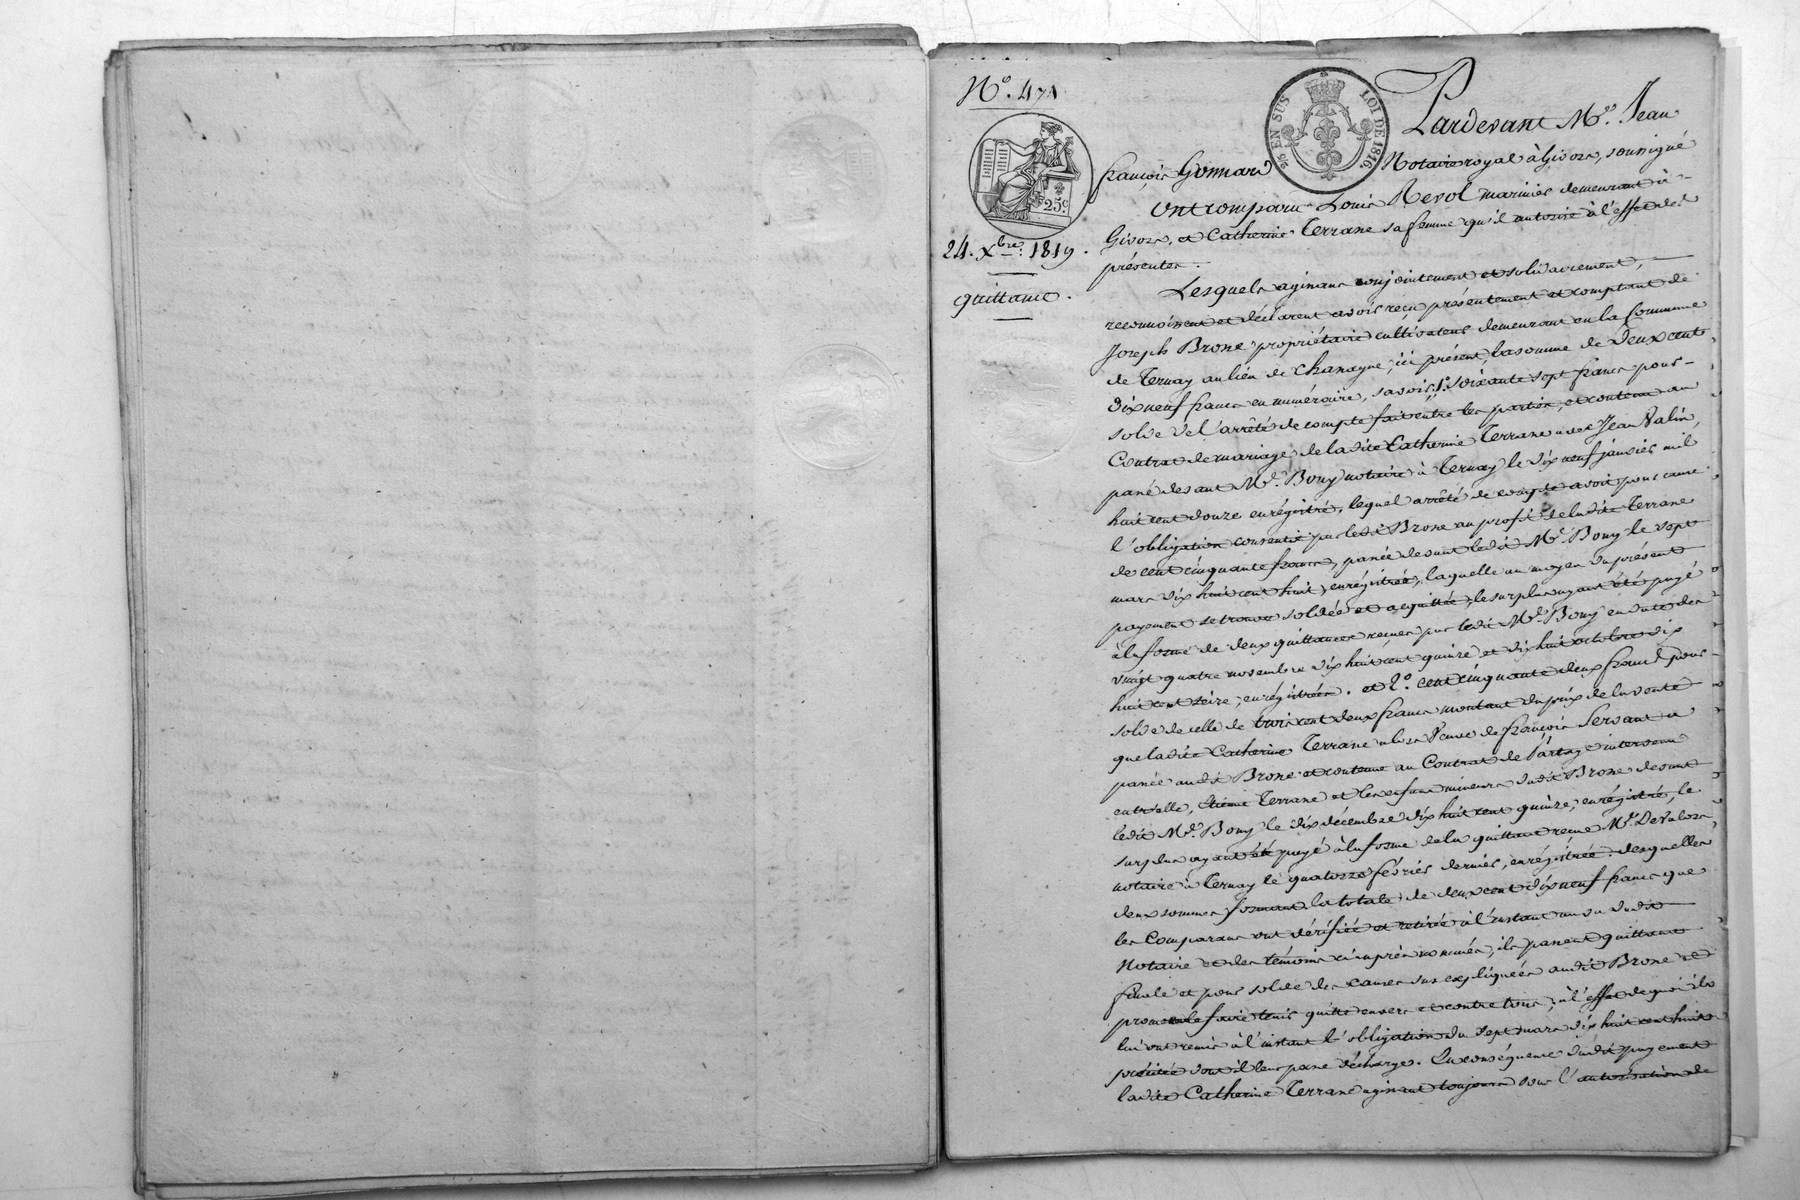 N.º 471
25 EN SUS LOI DE 1816.
25.c
24. Xbre. 1819.
quittance.
Pardevant M.e Jean
françois Gonnard Notaire royal à Givors, soussigné
ont comparu Louis Revol marinier demeurant à
Givors, et Catherine Terrane sa femme qu'il autorise à l'effet des
présentes.
Lesquels agissans conjointement et solidairement,
reconnoissent et déclarent avoir reçu présentement et comptant de
Joseph Brone propriétaire cultivateur demeurant en la Commune
de Ternay au lieu de Chanagne, ici présent, la somme de Deux cent
dix neuf francs en numéraire, savoir; 1.º soixante sept francs pour
solde de l'arrêté de compte fait entre les parties, et contenu au
Contrat de mariage de ladite Catherine Terrane avec Jean Valin,
passé devant M.e Bouy notaire à Ternay le dix neuf janvier mil
huit cent douze enrégistré, lequel arrêté de compte avoit pour cause
l'obligation consentie par ledit Brone au profit de ladite Terrane
de cent cinquante francs, passée devant ledit M.e Bouy le sept
mars dix huit cent huit, enrégistrée, laquelle au moyen du présent
payement se trouve soldée et acquittée, le surplus ayant été payé
à la forme de deux quittances recues par ledit M.e Bouy en date des
vingt quatre novembre dix huit cent quinze et dix huit octobre dix
huit cent seize, enrégistrées. et 2.º cent cinquante deux francs pour
solde de celle de trois cent deux francs montant du prix de la vente
que ladite Catherine Terrane alors Veuve de françois Servant a
passée audit Brone et contenue au Contrat de Partage intervenu
entr'elle, Etienne Terrane et les enfans mineurs dudit Brone devant
ledit M.e Bouy le dix décembre dix huit cent quinze, enrégistré, le
surplus ayant été payé à la forme de la quittance recue M.e Devalors
notaire à Ternay le quatorze février dernier, enrégistrée. desquelles
deux sommes formant la totale de deux cent dix neuf francs que
les Comparans ont vérifiée et retirée à l'instant au vu dudit
Notaire et des témoins ci après nommés, ils passent quittance
finale et pour solde des causes sus expliquées audit Brone et
promettent le faire tenir quitte envers et contre tous; à l'effet de quoi ils
lui ont remis à l'instant l'obligation du sept mars dix huit cent huit
précitée dont il leur passe décharge. En conséquence dudit payement
ladite Catherine Terrane agissant toujours sous l'autorisation de